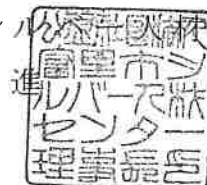 ル
公益社団法人
進
富里市シ
ルバー人材
センター
理事長印